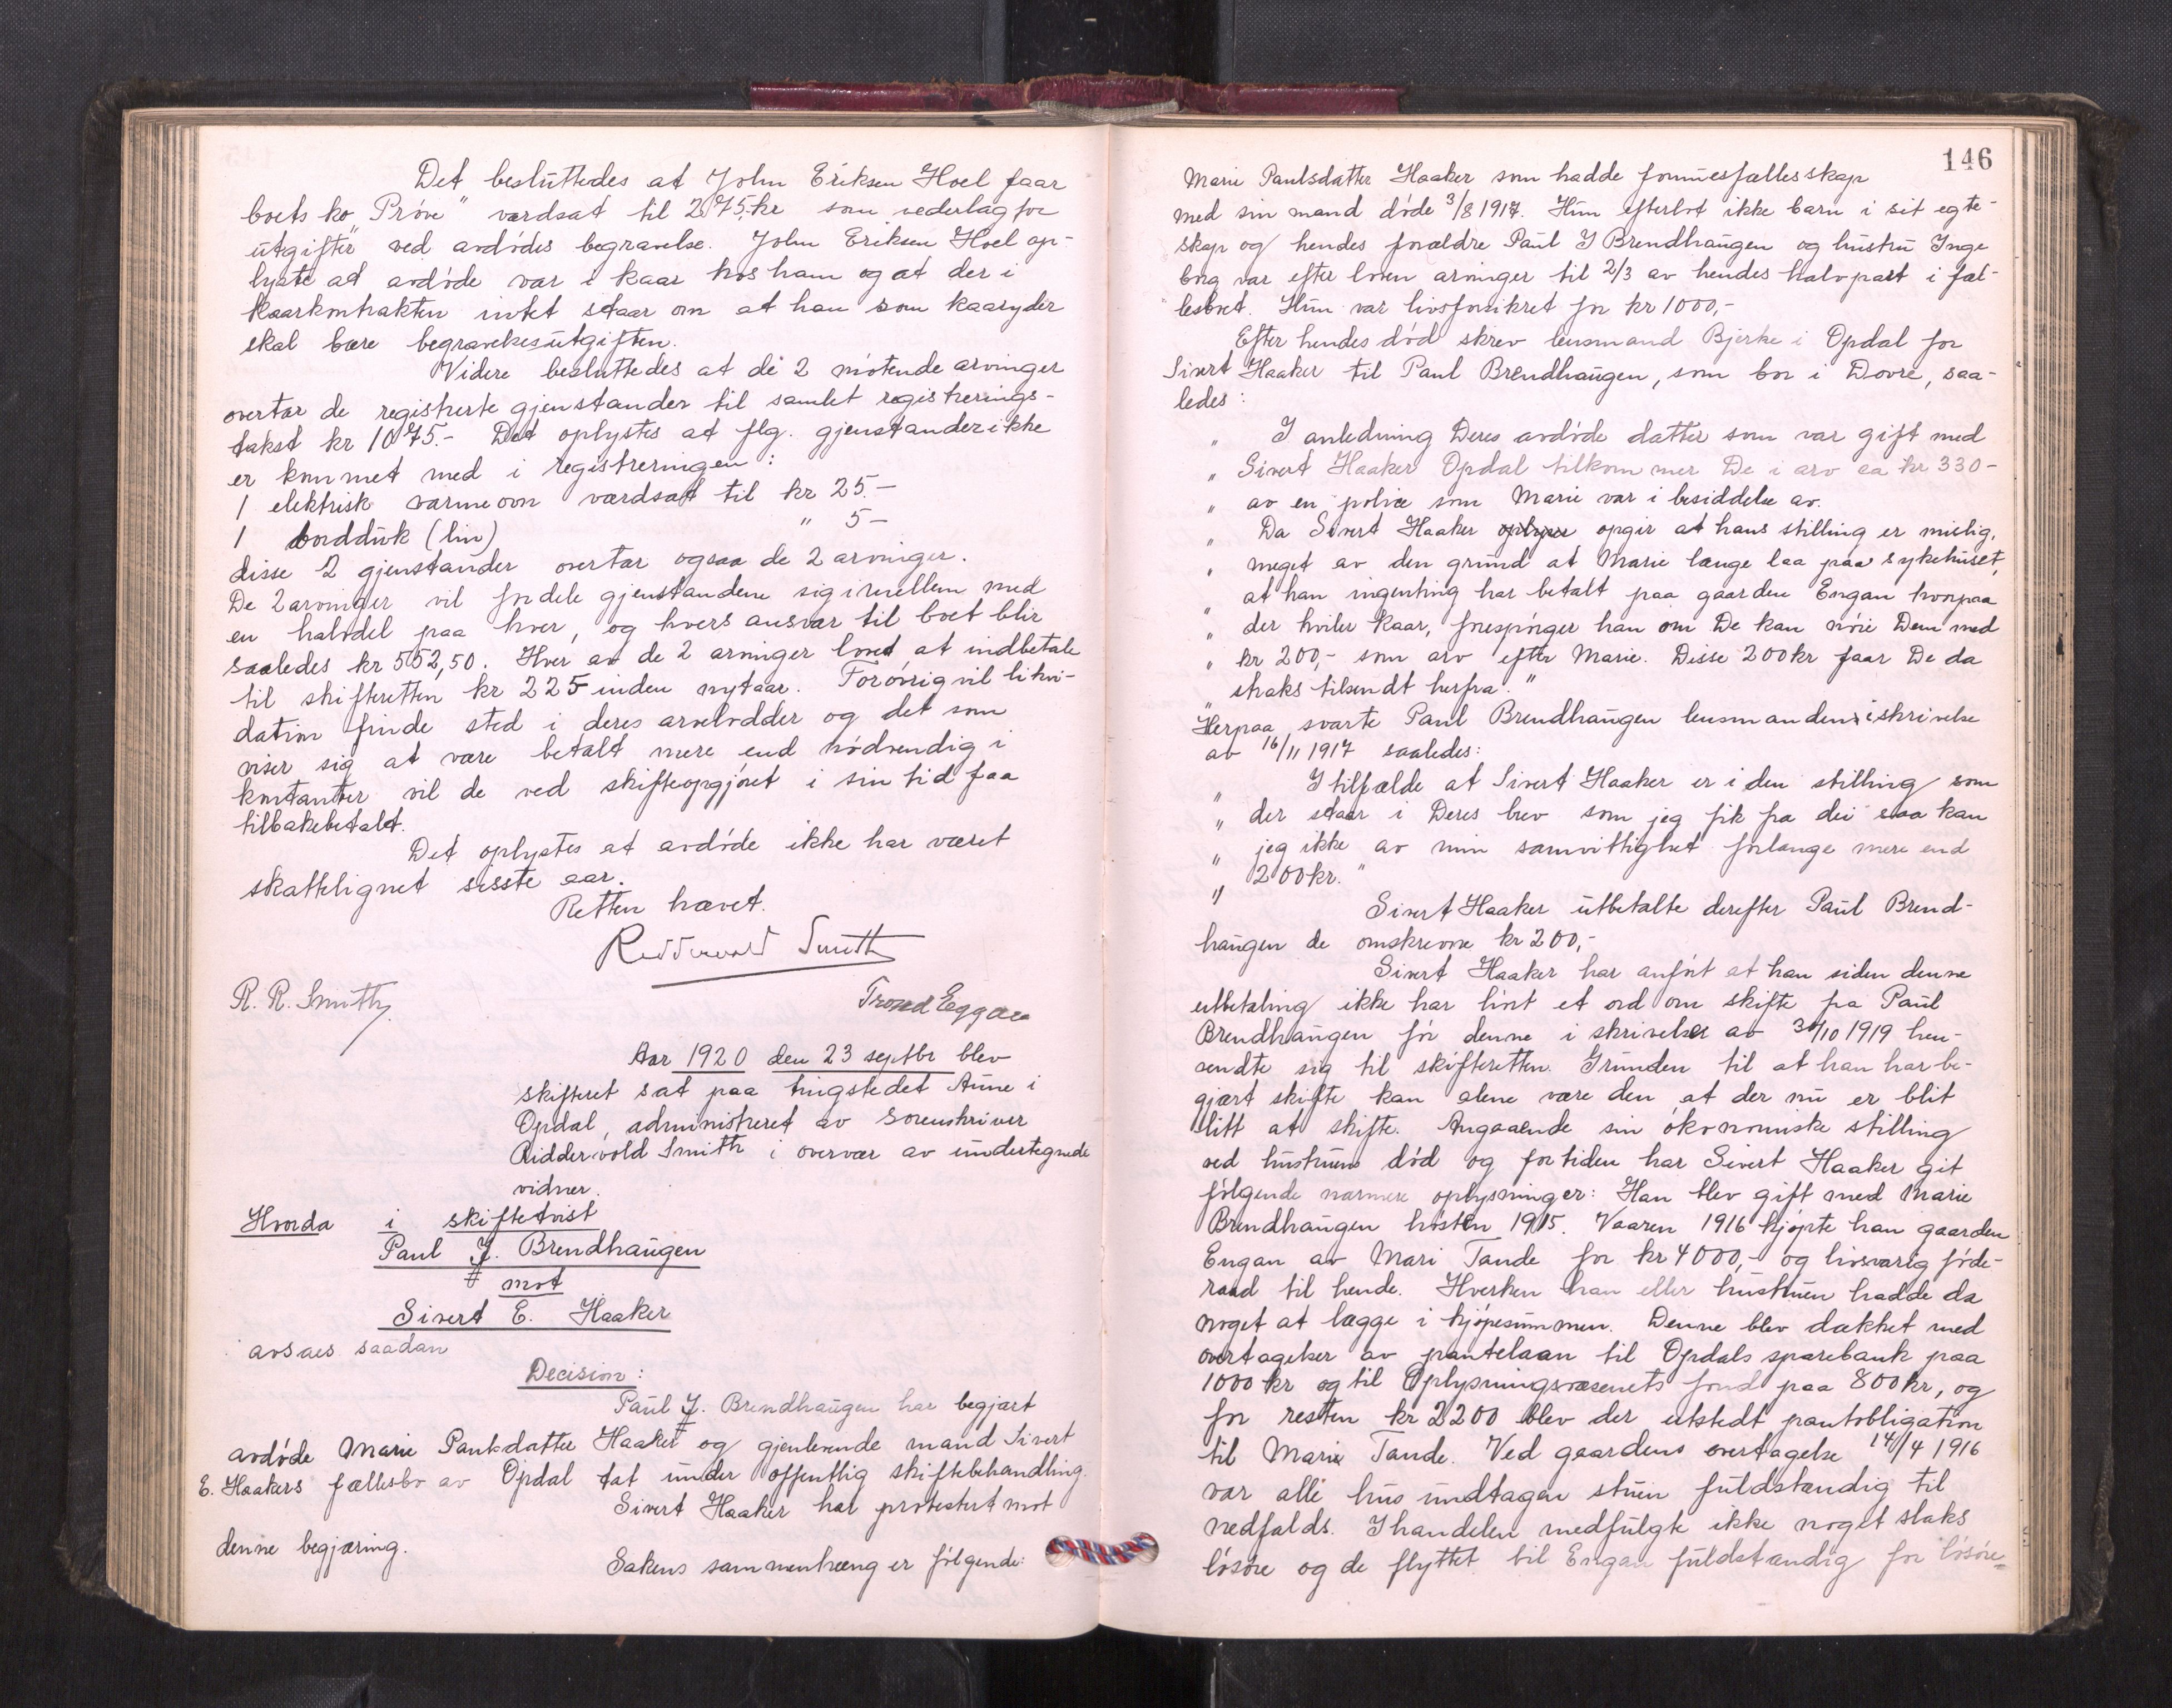 Det besluttedes at John Eriksen Hoel faar
boets ko „Prøve" værdsat til 275,kr som vederlag for
utgifter ved avdødes begravelse. John Eriksen Hoel op-
lyste at avdøde var i kaar hos ham og at der i
kaarkontrakten intet staar om at han som kaaryder
skal bære begravelsesutgiften.
Videre besluttedes at de 2 møtende arvinger
overtar de registrerte gjenstander til samlet registrerings-
takst kr 1075.- Det oplystes at flg. gjenstander ikke
er kommet med i registreringen:
1 elektrisk varmeovn værdsat til kr 25.-
1 borddúk (lin) " 5-
disse 2 gjenstander overtar ogsaa de 2 arvinger.
De 2 arvinger vil fordele gjenstandene sig imellem med
en halvdel paa hver, og hvers ansvar til boet blir
saaledes kr 552,50. Hver av de 2 arvinger lovet at indbetale
til skifteretten kr 225 inden nytaar. Forøvrig vil likvi-
dation finde sted i deres arvelodder og det som
viser sig at være betalt mere end nødvendig i
kontanter vil de ved skifteopgjøret i sin tid faa
tilbakebetalt.
Det oplystes at avdøde ikke har været
skattelignet sisste aar.
Retten hævet.
Riddervold Smith
R. R. Smith.
Trond Eggan
Aar 1920 den 23 septbr blev
skifteret sat paa tingstedet Aune i
Opdal, administreret av sorenskriver
Ridder vold Smith i overvær av undertegnede
vidner.
Hvorda i skiftetvist
Paul J. Brendhaugen
mot
Sivert E. Haaker
avsaes saadan
Decision:
Paul J. Brendhaugen har begjært
avdøde Marie Paulsdatter Haaker og gjenlevende mand Sivert
E. Haakers fællesbo av Opdal tat under offentlig skiftebehandling.
Sivert Haaker har protestert mot
denne begjæring.
Sakens sammenhæng er følgende:
146
Marie Paulsdatter Haaker som hadde formuesfællesskap
med sin mand døde 3/8 1917. Hun efterlot ikke barn i sit egte-
skap og hendes forældre Paul J Brendhaugen og hustru Inge
borg var efter loven arvinger til 2/3 av hendes halvpart i fæl-
lesboet. Hun var livsforsikret for kr 1000,-
Efter hendes død skrev lensmand Bjerke i Opdal for
Sivert Haaker til Paul Brendhaugen, som bor i Dovre, saa-
ledes:
„ I anledning Deres avdøde datter som var gift med
„ Sivert Haaker Opdal tilkommer De i arv ca kr 330-
„ av en police som Marie var i besiddelse av.
„ Da Sivert Haaker oplyser opgir at hans stilling er mislig,
„ meget av den grund at Marie længe laa paa sykehuset,
„ at han ingenting har betalt paa gaarden Engan hvorpaa
„ der hviler kaar, forespørger han om De kan nøie Dem med
„ kr 200,- som arv efter Marie. Disse 200 kr faar De da
„ straks tilsendt herfra."
Herpaa svarte Paul Brendhaugen lensmanden i skrivelse
av 16/11 1917 saaledes:
„ I tilfælde at Sivert Haaker er i den stilling som
„ der staar i Deres brev som jeg fik fra dei saa kan
„ jeg ikke av min samvittighet forlange mere end
„ 200 kr."
Sivert Haaker utbetalte derefter Paul Brend-
haugen de omskrevne kr 200,-
Sivert Haaker har anført at han siden denne
utbetaling ikke har hørt et ord om skifte fra Paul
Brendhaugen før denne i skrivelse av 30/10 1919 hen-
vendte sig til skifteretten. Grunden til at han har be-
gjært skifte kan alene være den, at der nu er blit
litt at skifte. Angaaende sin økonomiske stilling
ved hustruens død og for tiden har Sivert Haaker git
følgende nærmere oplysninger: Han blev gift med Marie
Brendhaugen høsten 1915. Vaaren 1916 kjøpte han gaarden
Engan av Mari Tande for kr 4000,- og livsvarig føde-
raad til hende. Hverken han eller hustruen hadde da
noget at lægge i kjøpesummen. Denne blev dækket med
overtagelser av pantelaan til Opdals sparebank paa
1000 kr og til Oplysningsvæsenets fond paa 800 kr, og
for resten kr 2200 blev der utstedt pantobligation
til Mari Tande. Ved gaardens overtagelse 14/4 1916
var alle hus undtagen stuen fuldstændig til
nedfalds. I handelen medfulgte ikke noget slags
løsøre og de flyttet til Engan fuldstændig for løsøre-